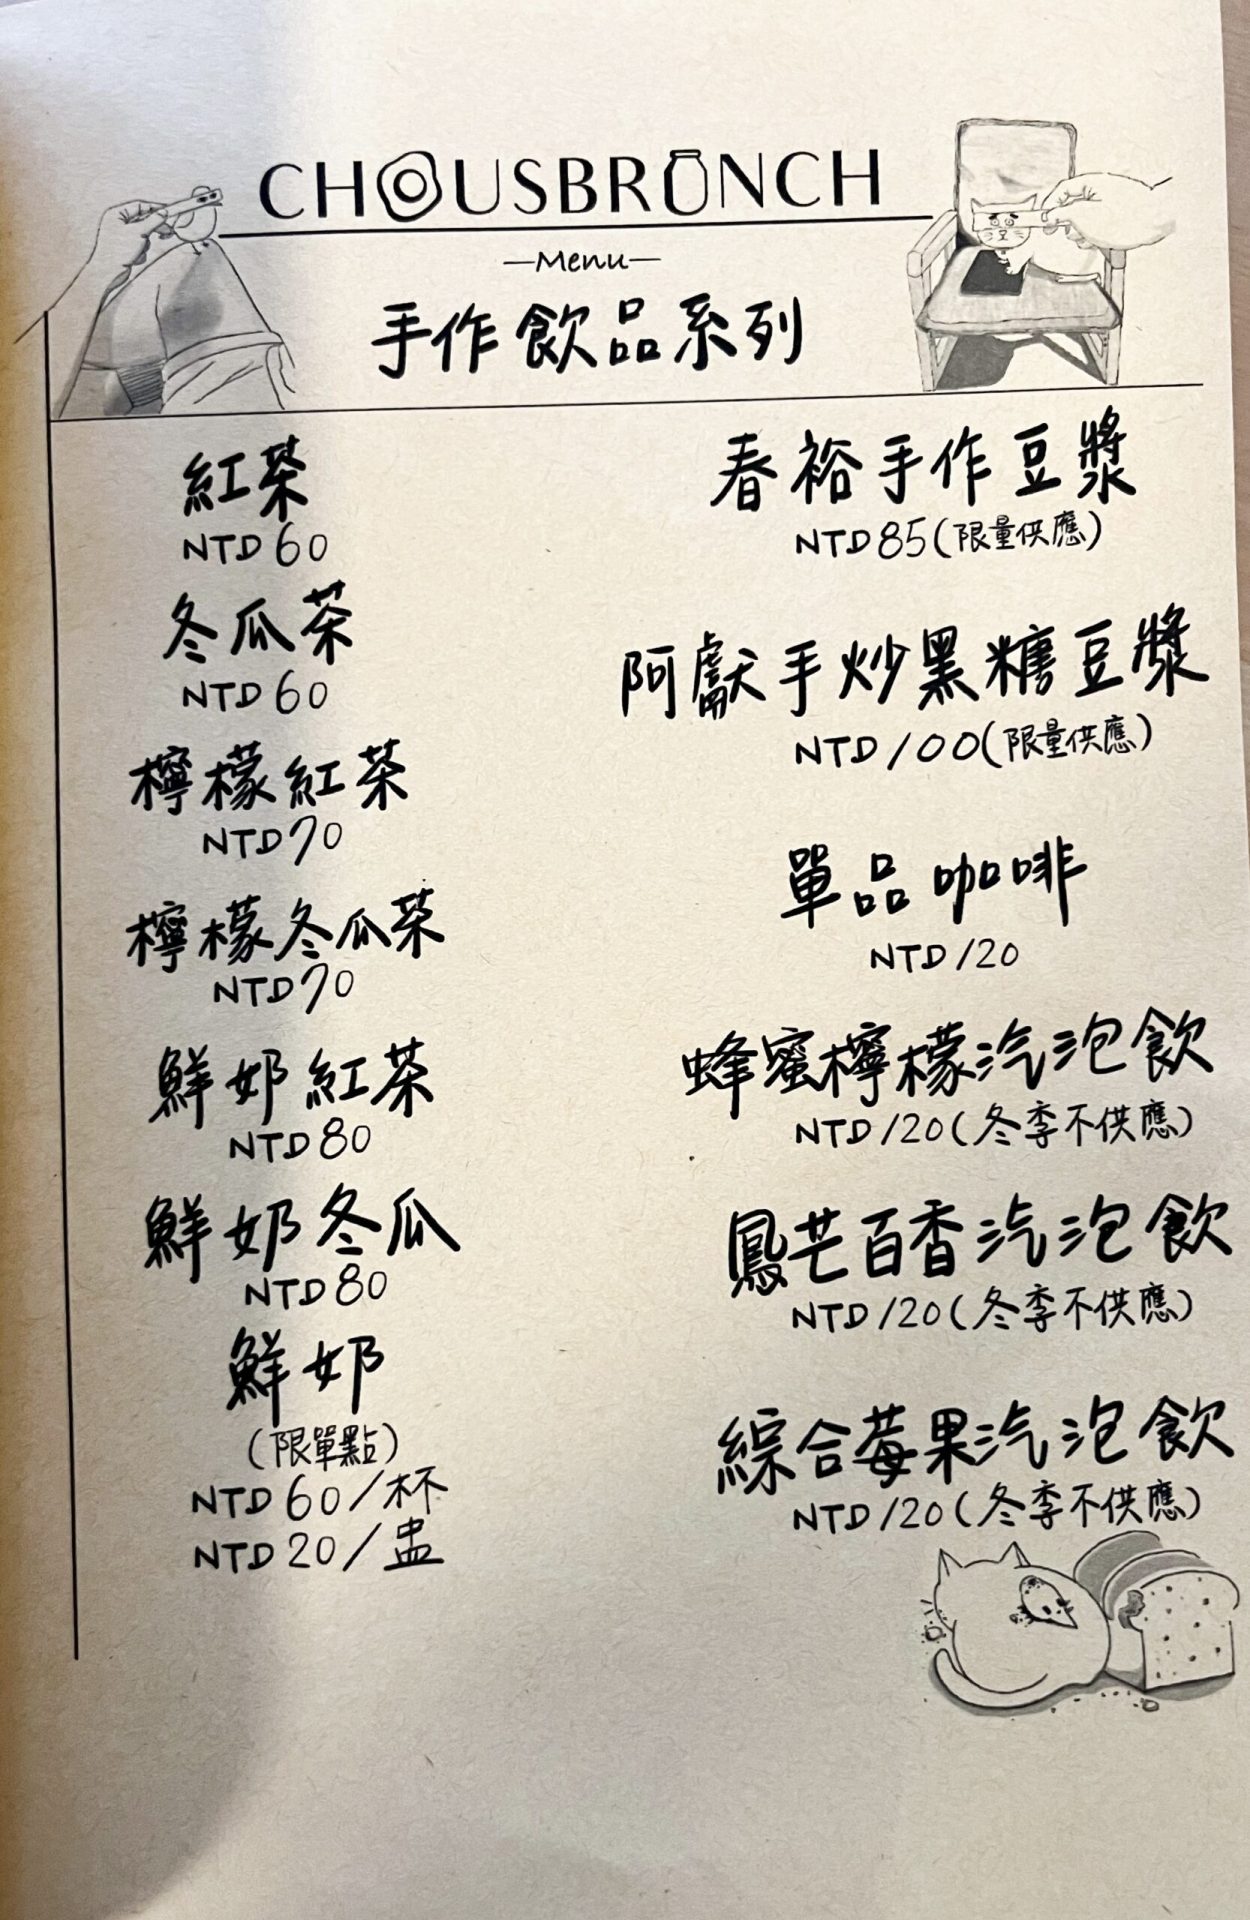 CHOUSBRUNCH
—Menu—
手作飲品系列
紅茶
NTD 60
冬瓜茶
NTD 60
檸檬紅茶
NTD 70
檸檬冬瓜茶
NTD 70
鮮奶紅茶
NTD 80
鮮奶冬瓜
NTD 80
鮮奶
(限單點)
NTD 60/杯
NTD 20/盅
春裕手作豆漿
NTD 85(限量供應)
阿獻手炒黑糖豆漿
NTD 100(限量供應)
單品咖啡
NTD 120
蜂蜜檸檬汽泡飲
NTD 120(冬季不供應)
鳳芒百香汽泡飲
NTD 120(冬季不供應)
綜合莓果汽泡飲
NTD 120(冬季不供應)